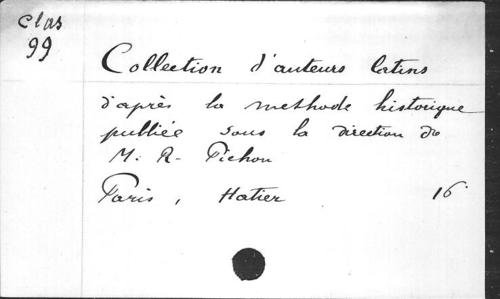 clas
99
Collection d'auteurs latins
d'après la methode historique
publiée sous la direction de
M. R. Pichon
Paris, Hatier 16°